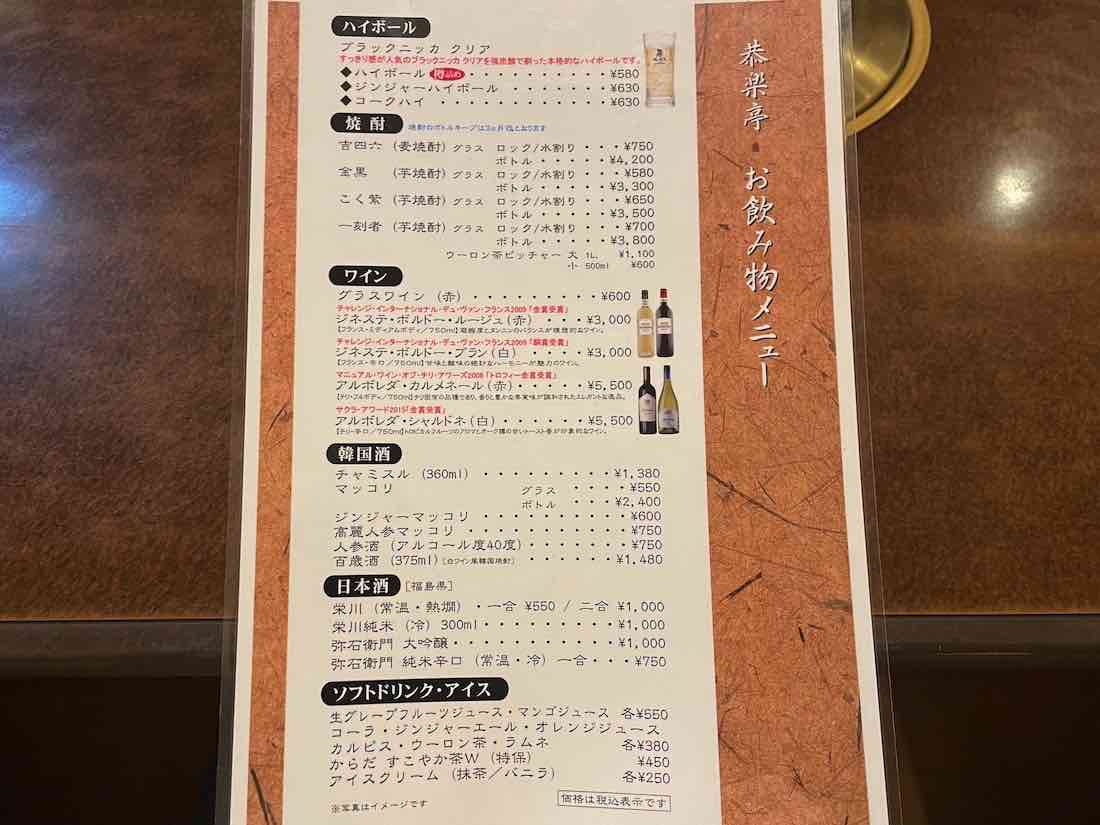 恭楽亭 お飲み物メニュー
ハイボール
ブラックニッカ クリア
すっきり感が人気のブラックニッカ クリアを強炭酸で割った本格的なハイボールです。
◆ハイボール 樽詰め ・・・・・・・・・¥580
◆ジンジャーハイボール ・・・・・・・¥630
◆コークハイ ・・・・・・・・・・・¥630
焼酎 焼酎のボトルキープは3ヵ月迄となります
吉四六 (麦焼酎) グラス ロック/水割り ・・・¥750
ボトル ・・・・・¥4,200
金黒 (芋焼酎) グラス ロック/水割り ・・・¥580
ボトル ・・・・・¥3,300
こく紫 (芋焼酎) グラス ロック/水割り ・・・¥650
ボトル ・・・・・¥3,500
一刻者 (芋焼酎) グラス ロック/水割り ・・・¥700
ボトル ・・・・・¥3,800
ウーロン茶ピッチャー 大 1L. ¥1,100
小 500ml ¥600
ワイン
グラスワイン (赤) ・・・・・・・・・¥600
チャレンジ・インターナショナル・デュ・ヴァン・フランス2009「金賞受賞」
ジネステ・ボルドー・ルージュ(赤) ・・・¥3,000
【フランス・ミディアムボディ/750ml】凝縮度とタンニンのバランスが理想的なワイン。
チャレンジ・インターナショナル・デュ・ヴァン・フランス2009「銅賞受賞」
ジネステ・ボルドー・ブラン(白) ・・・・¥3,000
【フランス・辛口/750ml】甘味と酸味の絶妙なハーモニーが魅力のワイン。
マニュアル・ワイン・オブ・チリ・アワーズ2008「トロフィー金賞受賞」
アルボレダ・カルメネール(赤) ・・・・・¥5,500
【チリ・フルボディ/750ml】チリ固有の品種であり、香りと豊かな果実味が調和されたエレガントな逸品。
サクラ・アワード2015「金賞受賞」
アルボレダ・シャルドネ(白) ・・・・・・¥5,500
【チリ・辛口/750ml】トロピカルフルーツのアロマとオーク樽の甘いトースト香が印象的なワイン。
韓国酒
チャミスル (360ml) ・・・・・・・・・¥1,380
マッコリ グラス ・・・・¥550
ボトル ・・・・¥2,400
ジンジャーマッコリ ・・・・・・・・・¥600
高麗人参マッコリ ・・・・・・・・・・¥750
人参酒 (アルコール度40度) ・・・・・・・¥750
百歳酒 (375ml) [白ワイン風韓国焼酎] ・・・・・・¥1,480
日本酒 [福島県]
栄川 (常温・熱燗) ・一合 ¥550 / 二合 ¥1,000
栄川純米 (冷) 300ml・・・・・・・・・¥1,000
弥右衛門 大吟醸・・・・・・・・・・・¥1,000
弥右衛門 純米辛口 (常温・冷) 一合・・・¥750
ソフトドリンク・アイス
生グレープフルーツジュース・マンゴジュース 各¥550
コーラ・ジンジャーエール・オレンジジュース
カルピス・ウーロン茶・ラムネ 各¥380
からだ すこやか茶W (特保) ¥450
アイスクリーム (抹茶/バニラ) 各¥250
※写真はイメージです
価格は税込表示です